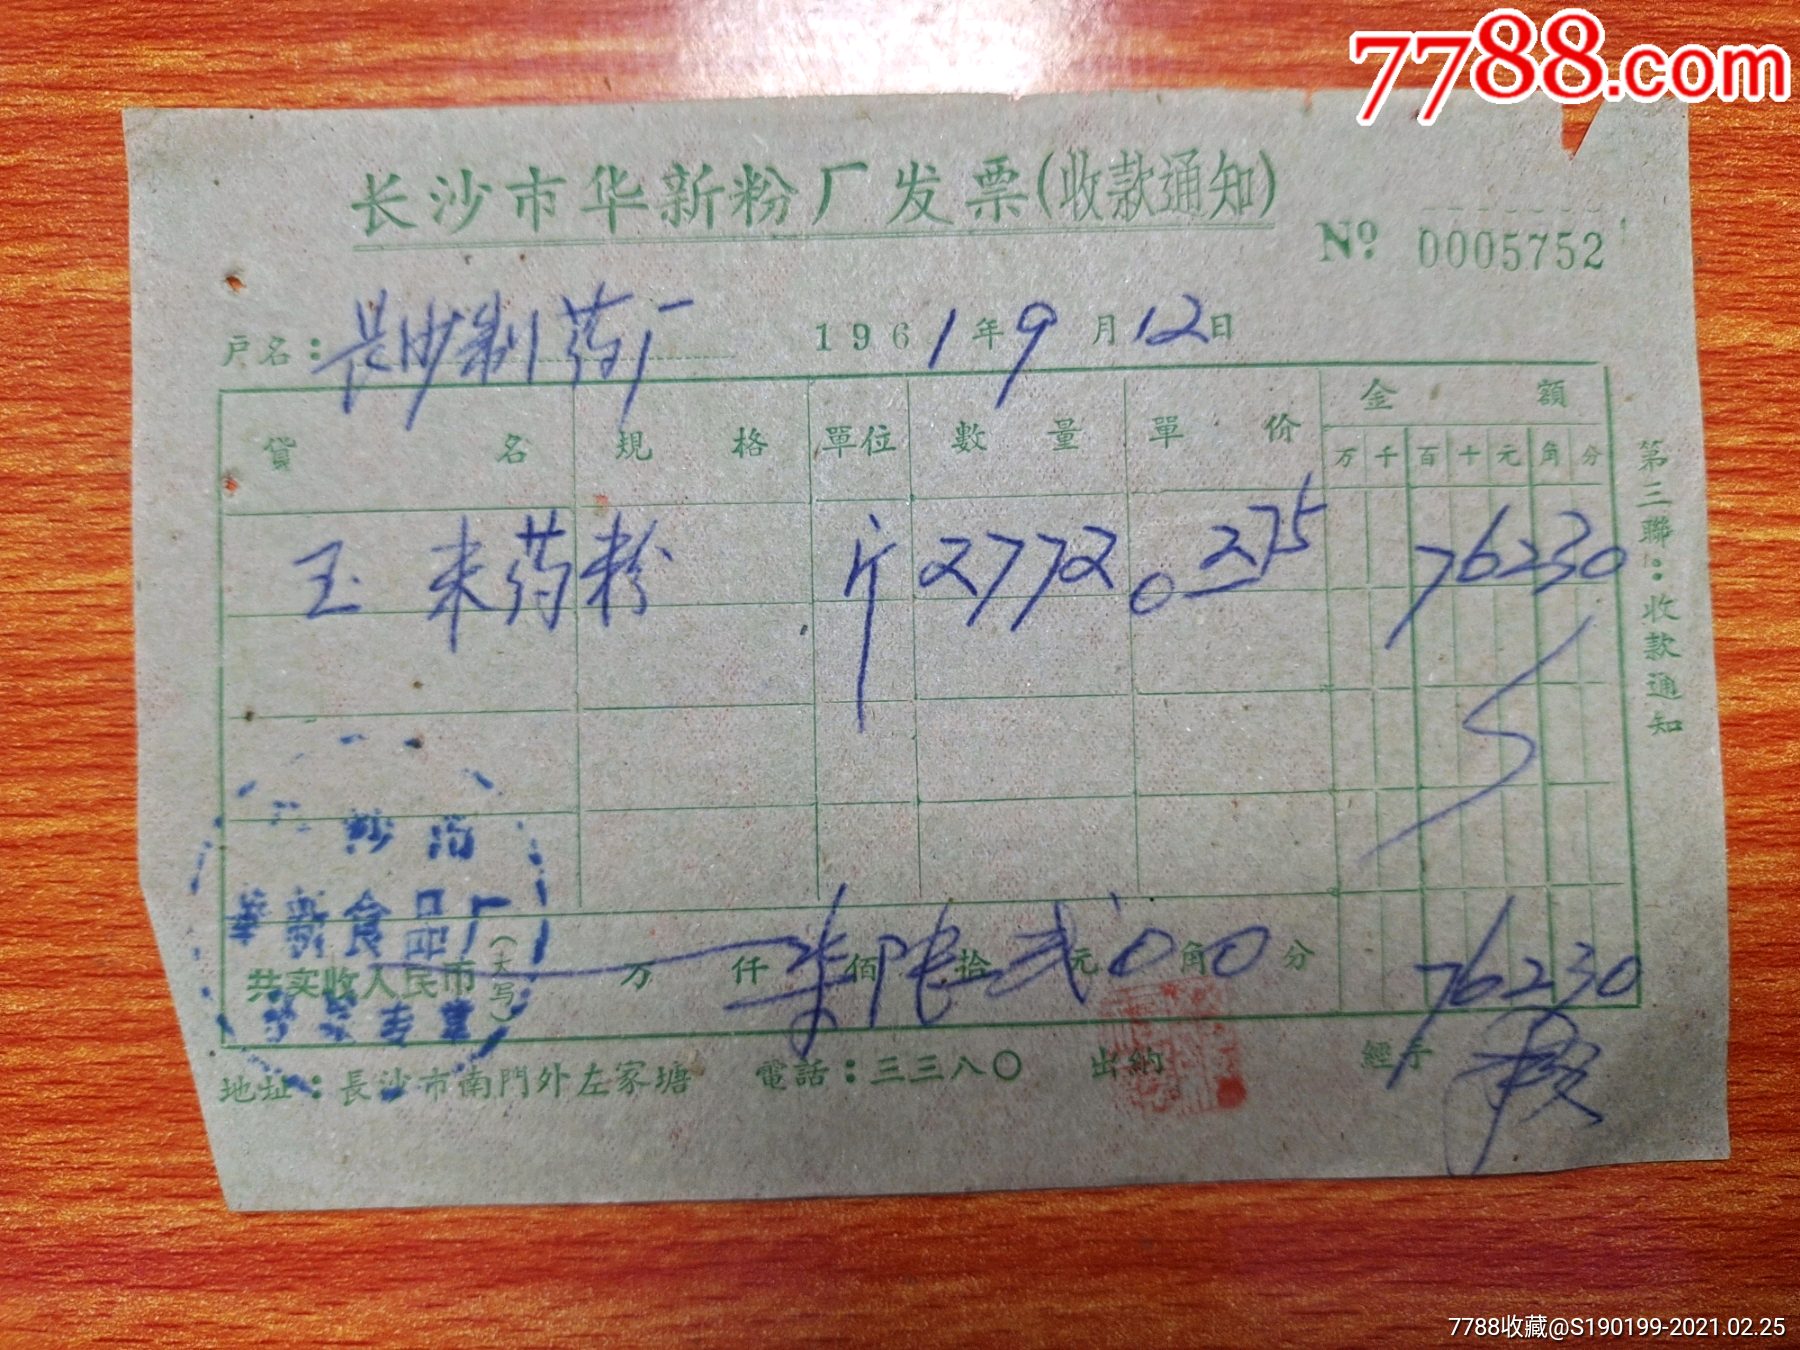 7788.com
长沙市华新粉厂发票(收款通知)
Nº 0005752
户名:长沙制药厂 1961年9月12日
貨名 規格 單位 數量 單价 金額
万 千 百 十 元 角 分
玉米药粉 斤 2772 0.275 76230
第三聯:收款通知
沙市
華新食品厂
专章
共实收人民币(大写) 万 仟 柒佰陆拾贰元 角0分 76230
地址:長沙市南門外左家塘 電話:三三八〇 出納 經手
7788收藏@S190199-2021.02.25